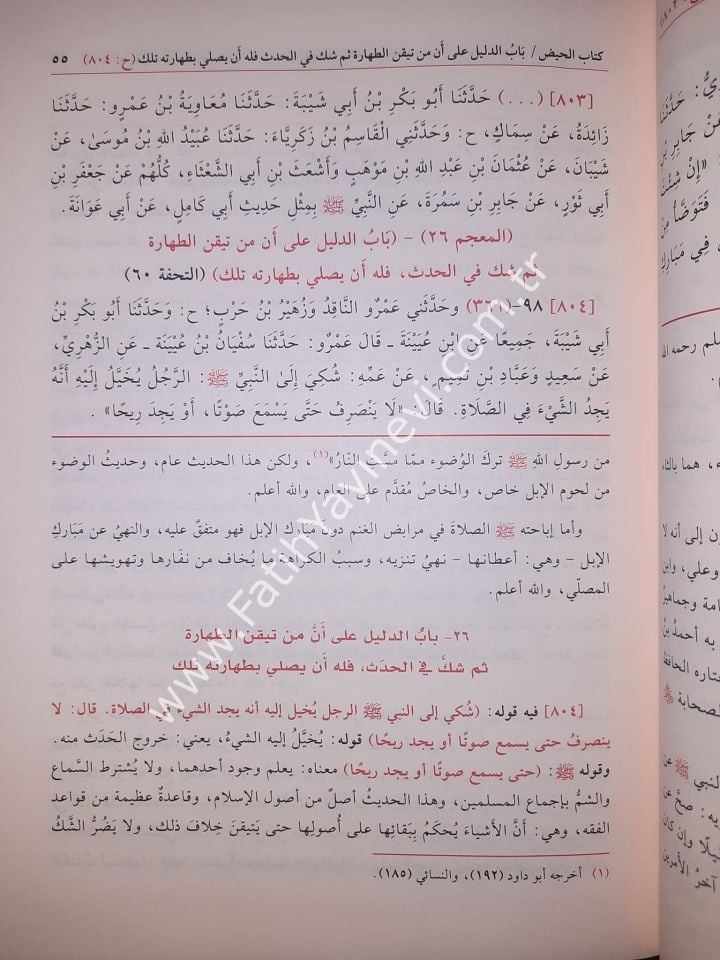 كتاب الحيض / بَابُ الدليل على أن من تيقن الطهارة ثم شك في الحدث فله أن يصلي بطهارته تلك (ح: ٨٠٤) ٥٥
[٨٠٣] (...) حَدَّثَنَا أَبُو بَكْرِ بْنُ أَبِي شَيْبَةَ: حَدَّثَنَا مُعَاوِيَةُ بْنُ عَمْرٍو: حَدَّثَنَا
زَائِدَةُ، عَنْ سِمَاكٍ، ح: وَحَدَّثَنِي الْقَاسِمُ بْنُ زَكَرِيَّاءَ: حَدَّثَنَا عُبَيْدُ اللهِ بْنُ مُوسَىٰ، عَنْ
شَيْبَانَ، عَنْ عُثْمَانَ بْنِ عَبْدِ اللهِ بْنِ مَوْهَبٍ وَأَشْعَثَ بْنِ أَبِي الشَّعْثَاءِ، كُلُّهُمْ عَنْ جَعْفَرِ بْنِ
أَبِي ثَوْرٍ، عَنْ جَابِرِ بْنِ سَمُرَةَ، عَنِ النَّبِيِّ ﷺ بِمِثْلِ حَدِيثِ أَبِي كَامِلٍ، عَنْ أَبِي عَوَانَةَ.
(المعجم ٢٦) - (بَابُ الدليل على أن من تيقن الطهارة
ثم شك في الحدث، فله أن يصلي بطهارته تلك) (التحفة ٦٠)
[٨٠٤] ٩٨-(٣٦١) وحَدَّثَنِي عَمْرٌو النَّاقِدُ وَزُهَيْرُ بْنُ حَرْبٍ؛ ح: وَحَدَّثَنَا أَبُو بَكْرِ بْنُ
أَبِي شَيْبَةَ، جَمِيعًا عَنِ ابْنِ عُيَيْنَةَ ـ قَالَ عَمْرٌو: حَدَّثَنَا سُفْيَانُ بْنُ عُيَيْنَةَ ـ عَنِ الزُّهْرِيِّ،
عَنْ سَعِيدٍ وَعَبَّادِ بْنِ تَمِيمٍ، عَنْ عَمِّهِ: شُكِيَ إِلَى النَّبِيِّ ﷺ: الرَّجُلُ يُخَيَّلُ إِلَيْهِ أَنَّهُ
يَجِدُ الشَّيْءَ فِي الصَّلَاةِ. قَالَ: «لَا يَنْصَرِفُ حَتَّى يَسْمَعَ صَوْتًا، أَوْ يَجِدَ رِيحًا» .
من رسولِ اللهِ ﷺ تركَ الوُضوء ممّا مسَّتِ النَّارُ»(١)، ولكن هذا الحديث عام، وحديثُ الوضوء
من لحوم الإبل خاص، والخاصُ مُقدَّم على العام، والله أعلم.
وأما إباحته ﷺ الصلاةَ في مرابض الغنم دونَ مَبارك الإبل فهو متفقٌ عليه، والنهيُ عن مَبَاركِ
الإبل - وهي: أعطانها - نهيُ تنزيه، وسببُ الكراهة ما يُخاف من نفَارها وتهويشها على
المصلّي، والله أعلم.
٢٦- بابُ الدليل على أَنَّ من تيقن الطهارة
ثم شكَّ في الحدَث، فله أن يصلي بطهارته تلك
[٨٠٤] فيه قوله: (شُكي إلى النبي ﷺ الرجل يُخيل إليه أنه يجد الشيءَ في الصلاة. قال: لا
ينصرفُ حتى يسمع صوتًا أو يجد ريحًا) قوله: يُخيَّلُ إليه الشيءُ، يعني: خروج الحَدَث منه.
وقوله ﷺ: (حتى يسمع صوتًا أو يجد ريحًا) معناه: يعلم وجود أحدهما، ولا يُشترط السَّماع
والشمُّ بإجماع المسلمين، وهذا الحديثُ أصلٌ من أصول الإسلام، وقاعدةٌ عظيمة من قواعد
الفقه، وهي: أنَّ الأشياءَ يُحكَمُ بِبَقائِها على أُصولِها حتى يَتيقنَ خِلافَ ذلك، ولا يَضُرُّ الشَّكُّ
(١) أخرجه أبو داود (١٩٢)، والنسائي (١٨٥).
www.Fatihyayinevi.com.tr